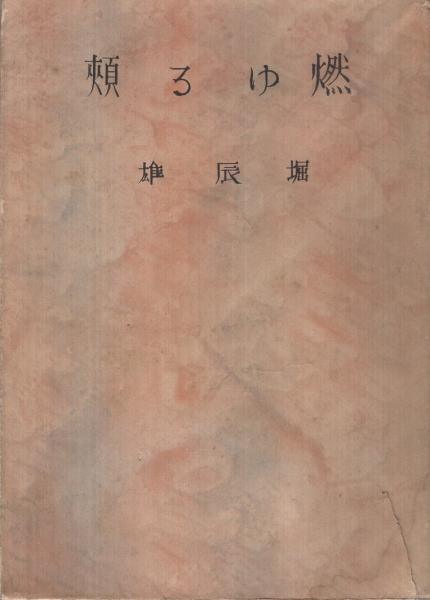 燃ゆる頰
堀辰雄